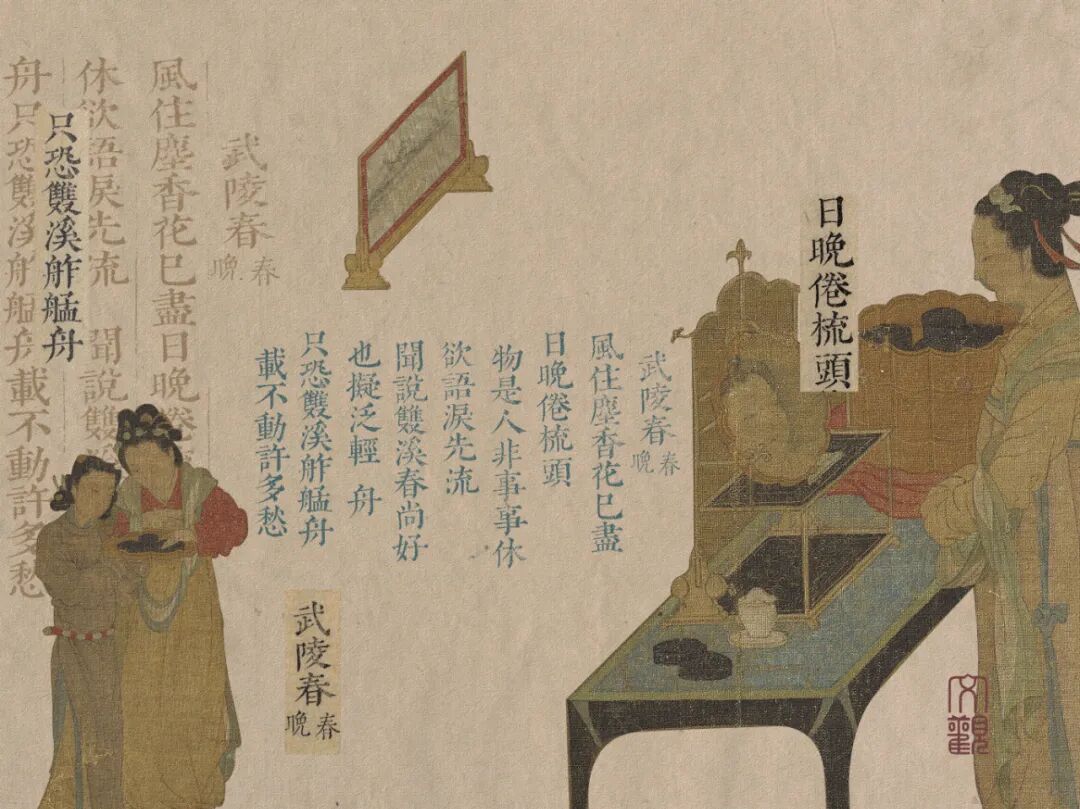 日晚倦梳頭
武陵春
春晚
風住塵香花已盡
日晚倦梳頭
物是人非事事休
欲語淚先流
聞說雙溪春尚好
也擬泛輕舟
只恐雙溪舴艋舟
載不動許多愁
武陵春
春晚
武陵春
春晚
風住塵香花已盡日晚倦
休欲語淚先流 聞說雙
只恐雙溪舴艋舟
舟只恐雙溪舴艋舟載不動許多愁
文觀